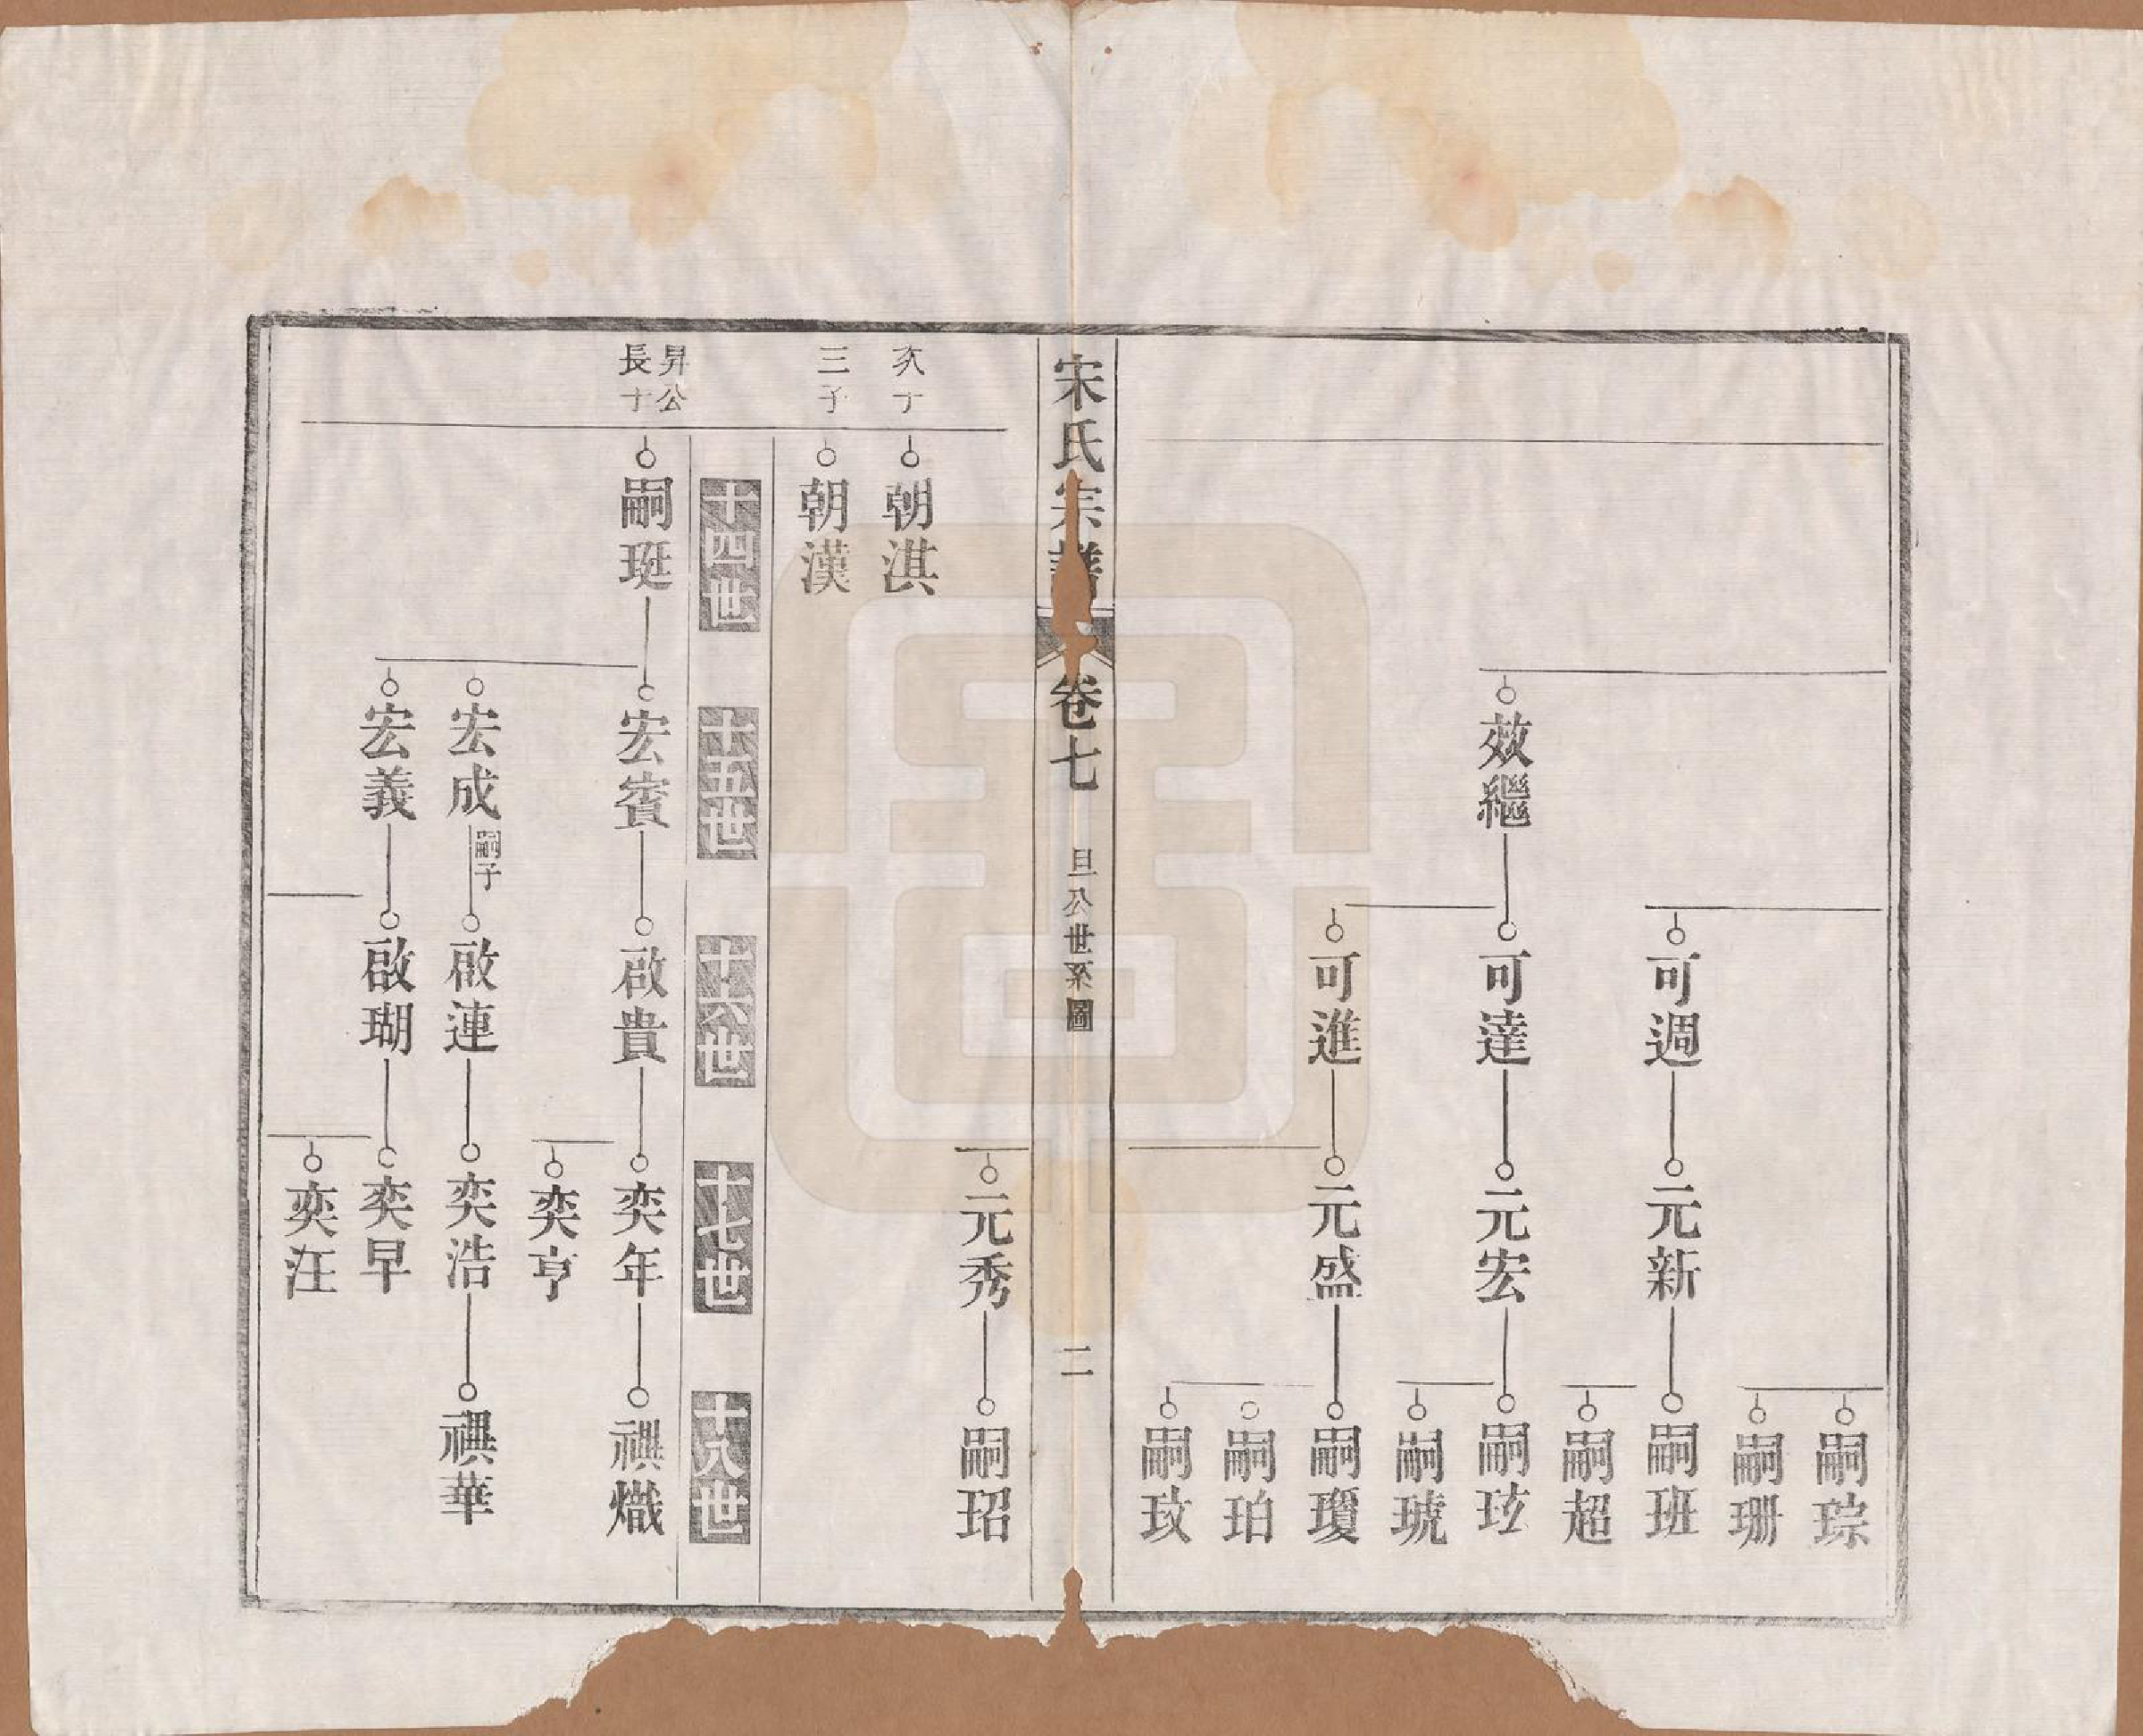 嗣琮
嗣珊
可週
元新
嗣班
嗣超
效繼
可達
元宏
嗣玹
嗣琥
可進
元盛
嗣瓊
嗣珀
嗣玟
宋氏宗譜
卷七
旦公世系圖
二
元秀
嗣玿
次子
朝淇
三子
朝漢
十四世
十五世
十六世
十七世
十八世
昇公
長子
嗣珽
宏賓
啟貴
奕年
禩熾
奕亨
宏成
嗣子
啟連
奕浩
禩華
宏義
啟瑚
奕早
奕汪